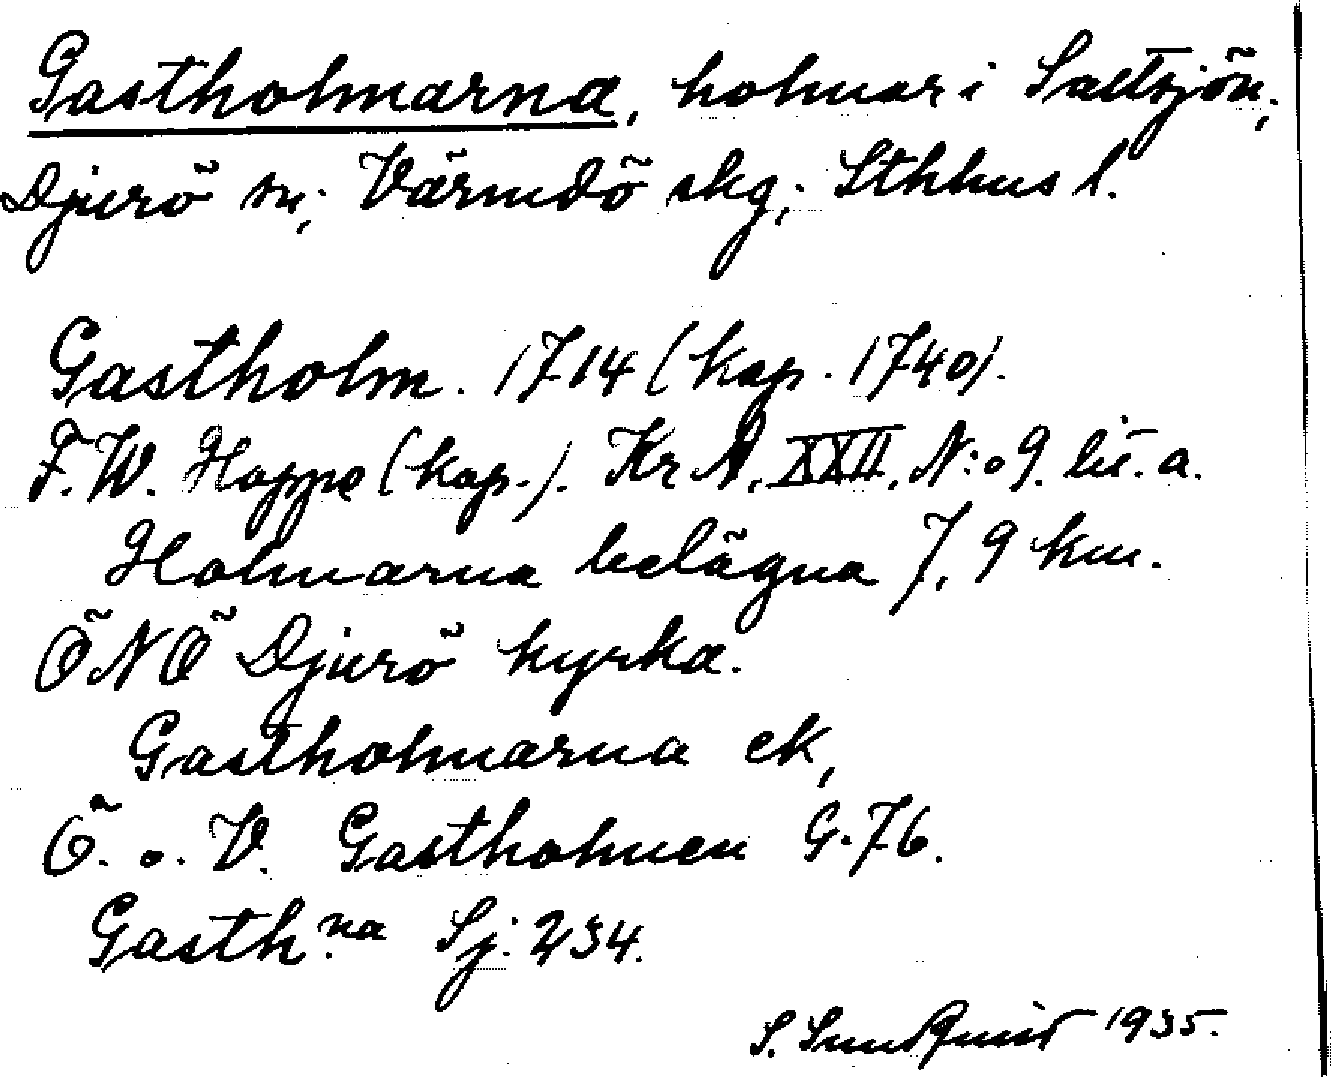 Gastholmarna, holmar i Saltsjön,
Djurö sn; Värmdö skg; Sthlms l.
Gastholm. 1714 (kop. 1740).
F. W. Hoppe (kop.). Kr A. XXII. N:o 9. lit. a.
Holmarna belägna 7,9 km.
ÖNÖ Djurö kyrka.
Gastholmarna ek,
Ö. o. V. Gastholmen G. 76.
Gasth.na Sj. 234.
S. Sundquist 1935.